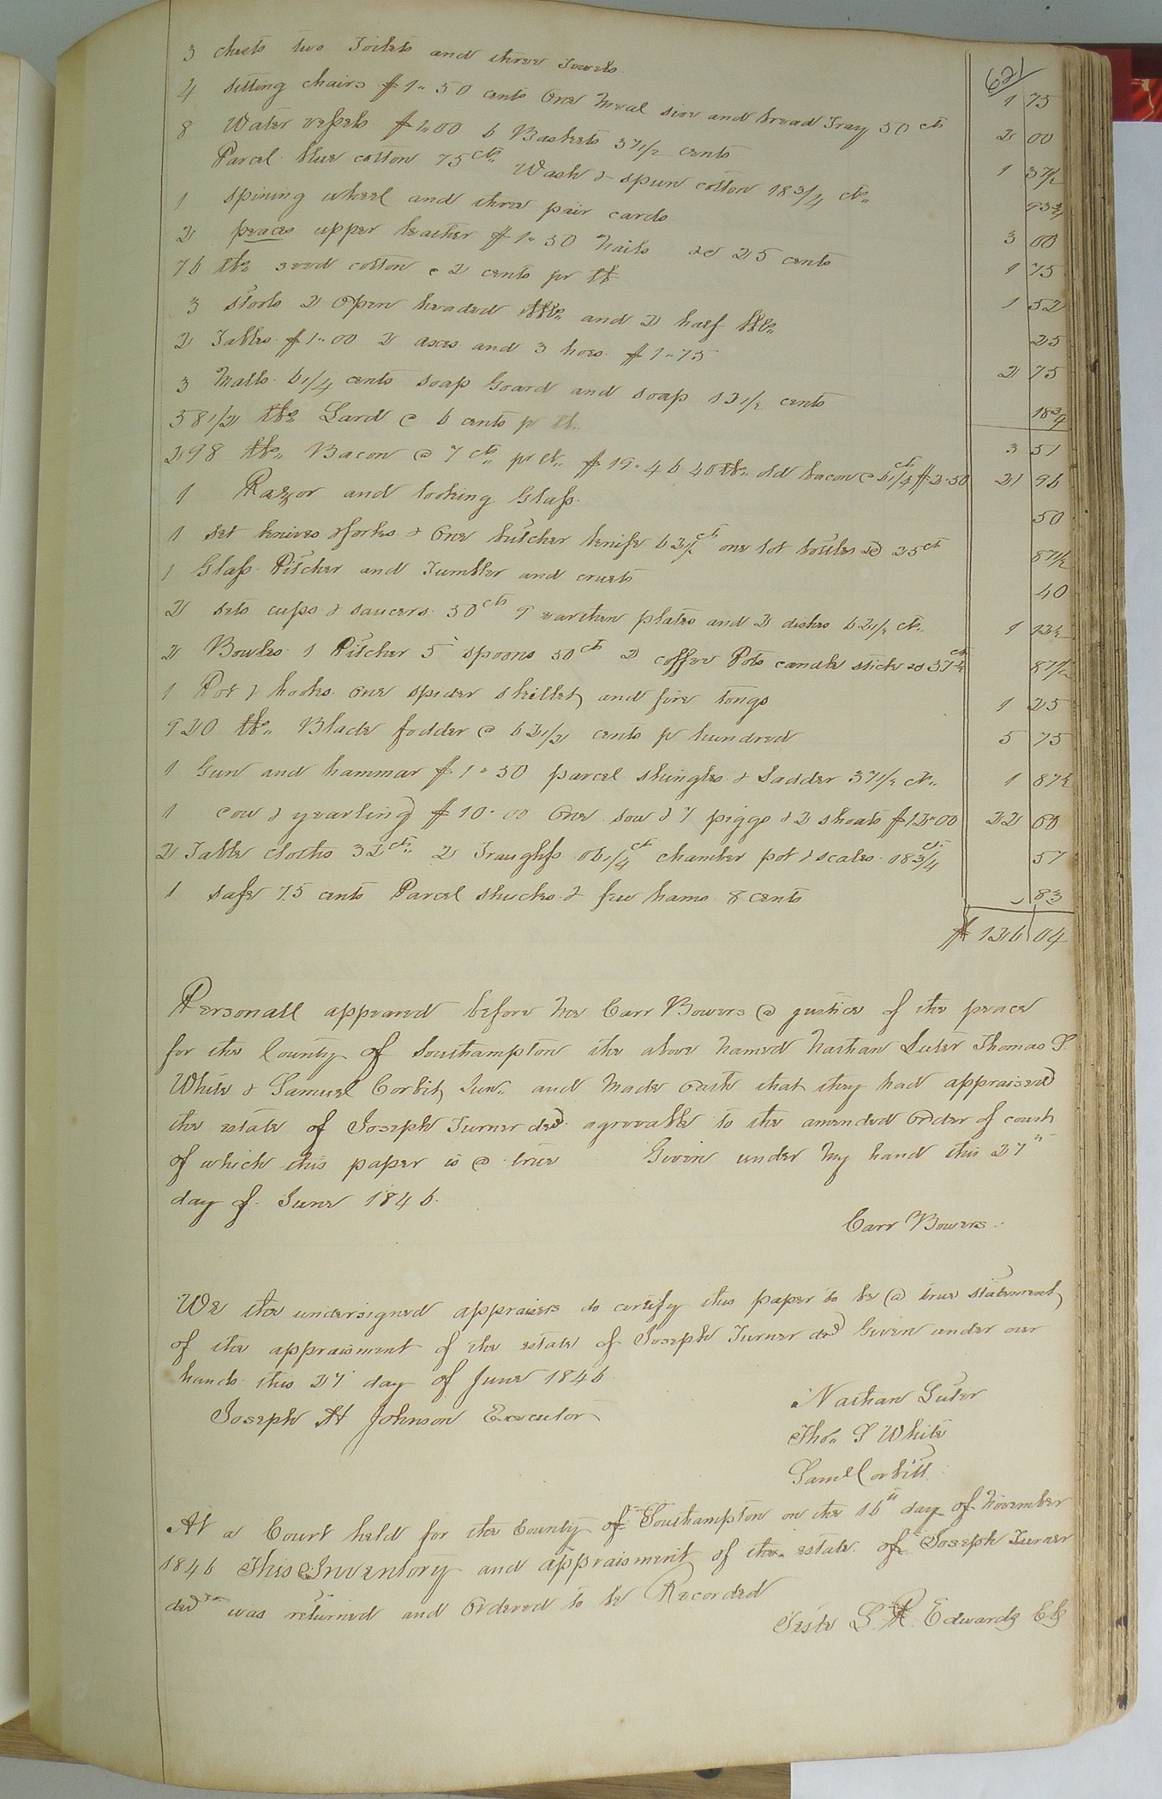 621
3 chests two Toilets and three Towels 1 75
4 sitting chairs $1.50 cents One meal sive and bread Tray 50 cts 2 00
8 Water vessels $1.00 6 Baskets 37 1/2 cents 1 37 1/2
Parcel blue cotton 75 cts Wash & spun cotton 18 3/4 cts 93 3/4
1 spining wheel and three pair cards 3 00
2 peaces upper leather $1.50 Nails 25 cents 1 75
76 lbs seed cotton @ 2 cents pr lb 1 52
3 stools 2 Open headed bbls and 2 half bbls 25
2 Tables $1.00 2 axes and 3 hoes $1.75 2 75
3 Matts 6 1/4 cents soap Goard and soap 12 1/2 cents 18 3/4
58 1/2 lbs Lard @ 6 cents pr lb 3 51
298 lbs Bacon @ 7 cts pr lb $19.46 40 lbs old bacon @ 6 1/4 cts $2.50 21 96
1 Razor and looking Glass 50
1 set knives & forks & One butcher knife 62 1/2 cts one lot bottles 25 cts 87 1/2
1 Glass Pitcher and Tumbler and cruets 40
2 sets cups & saucers 50 cts 9 earthen plates and 2 dishes 62 1/2 cts 1 12 1/2
2 Bowles 1 Pitcher 5 spoons 50 cts 2 coffee Pots candle stick 37 1/2 cts 87 1/2
1 Pot & hooks One spider skillet and fire tongs 1 25
920 lbs Blade fodder @ 62 1/2 cents pr hundred 5 75
1 Gun and hammar $1.50 parcel shingles & Ladder 37 1/2 cts 1 87 1/2
1 cow & yearling $10.00 One sow & 7 piggs & 2 shoats $12.00 22 00
2 Table cloths 32 cts 2 Traughfs 06 1/4 cts chamber pot & scales 18 3/4 cts 57
1 safe 75 cents Parcel shucks & few hams 8 cents 83
$126 04
Personall appeared before me Carr Bowers @ justice of the peace
for the County of Southampton the above named Nathan Luter Thomas S
White & Samuel Corbit Jun. and made oath that they had appraised
the estate of Joseph Turner decd agreeable to the amended Order of court
of which this paper is @ true Given under my hand this 27th
day of June 1846
Carr Bowers
We the undersigned appraisers do certify this paper to be @ true statement
of the appraisment of the estate of Joseph Turner decd Given under our
hands this 27 day of June 1846
Nathan Luter
Joseph H Johnson Executor
Thos S White
Saml Corbitt
At a Court held for the County of Southampton on the 16th day of November
1846 This Inventory and appraisment of the estate of Joseph Turner
decd was returned and Ordered to be Recorded
Teste L. R. Edwards Clk